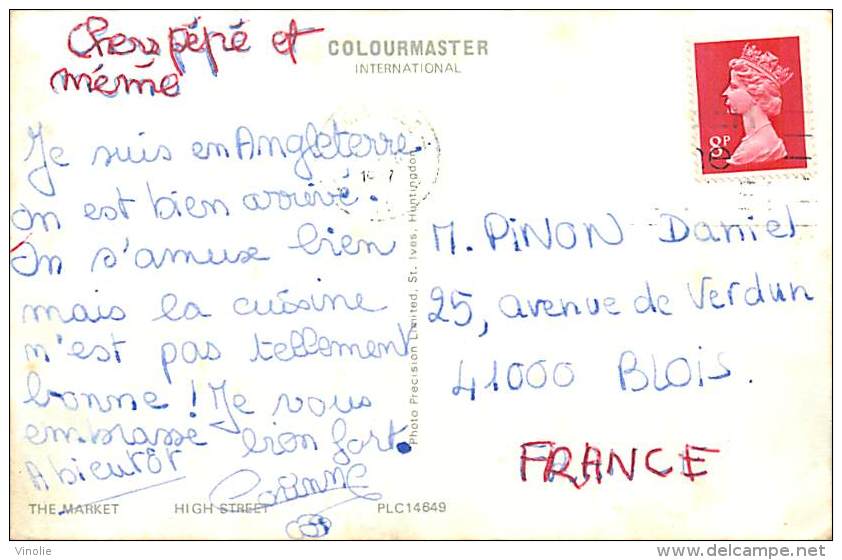 Chers pépé et
mémé
COLOURMASTER
INTERNATIONAL
8P
Je suis en Angleterre
On est bien arrivé.
On s'amuse bien
mais la cuisine
n'est pas tellement
bonne ! Je vous
embrasse bien fort.
A bientôt
Corinne
Photo Precision Limited, St. Ives, Huntingdon
M. PINON Daniel
25, avenue de Verdun
41000 BLOIS.
FRANCE
THE MARKET HIGH STREET PLC14649
Vinolie
www.delcampe.net